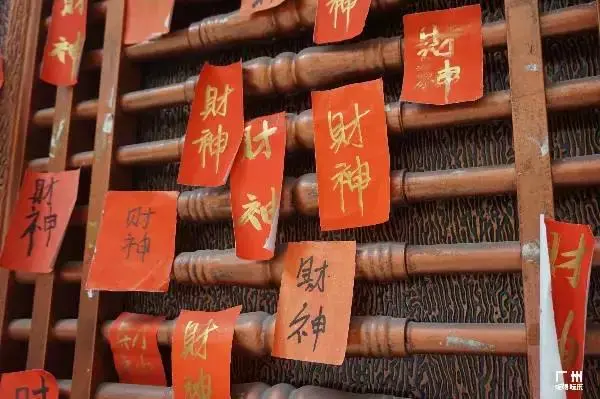 財神
神
財神
財神
財神
財神
財神
財神
財神
財
財神
財神
財
广州